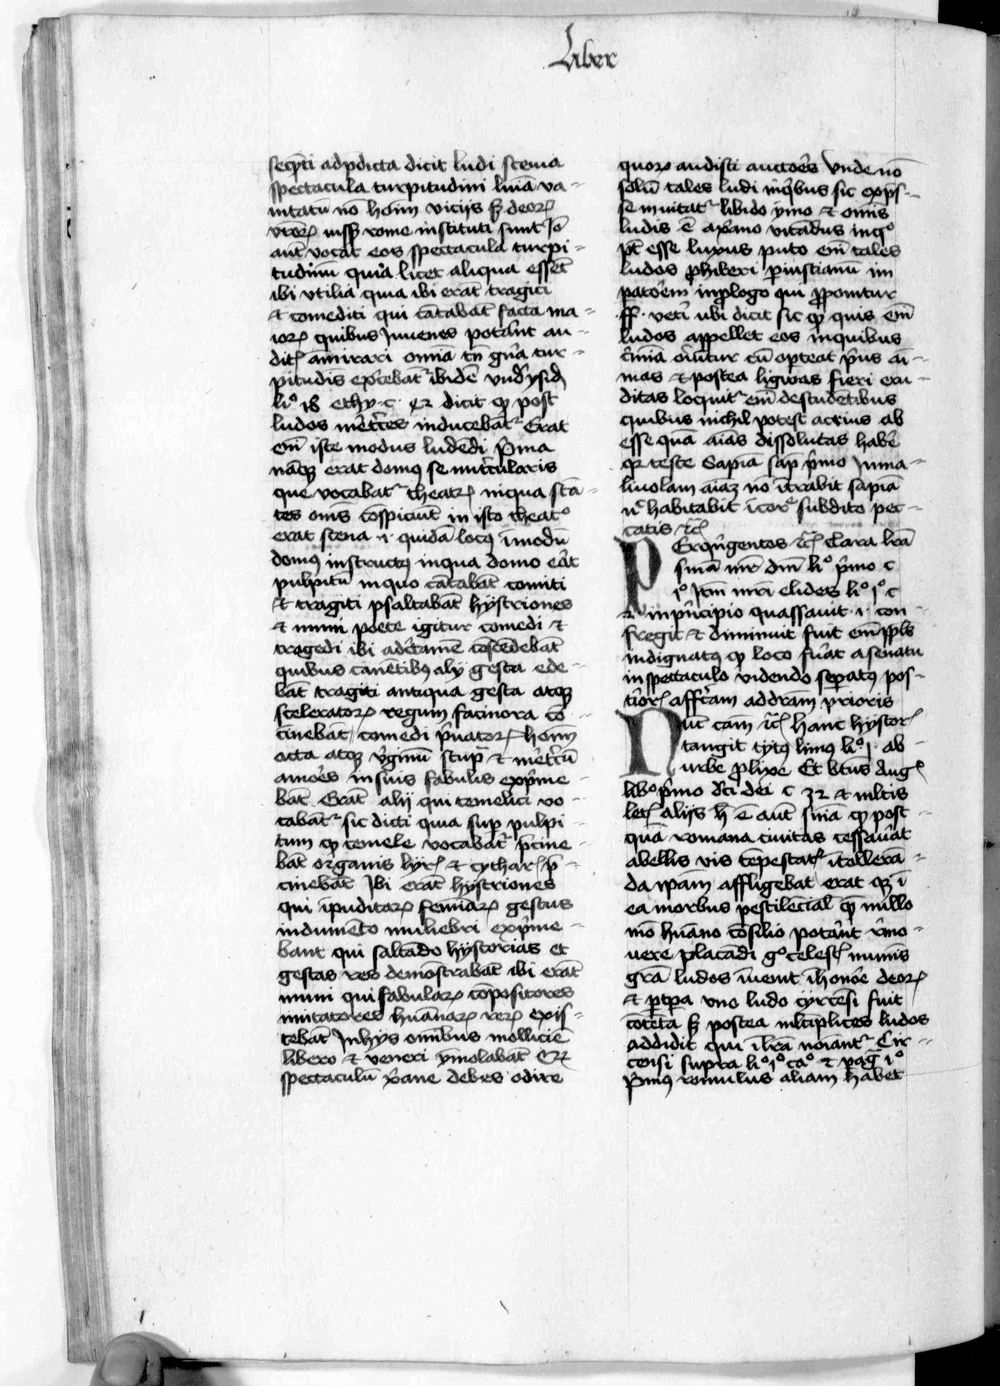 Liber
secūti adp̄dicta dicit ludi scenia
spectacula turpitudini licēīa va-
nitatū nō hoīm viciis sꝫ deoꝝ
vroꝝ iussꝫ rome instituti sunt Iō
aut̄ vocāt eos spectacula turpi-
tudinū quia licet aliqua essēt
ibi vtilia quia ibi erāt tragici
& comediti qui cātabāt facta ma-
ioꝝ quibus Iuuenes potāȓnt au-
ditꝫ āmirari omīa tn̄ gn̄a tur-
pitudīs exercebāt̉ ibidē vnd̉ ysid̉
liº 18 ethy. c. 42 dicit ꝙ post
ludos mēt̉ces inducebāt̉ Erat
eīn iste modus ludēdi P̉ma
nāqꝫ erat domꝰ semicircularis
que vocabat̉ theatꝝ inqua stā-
tes omīs cōspiciūt in isto theatº
erat scena .i. quidā locꝰ īmodū
domꝰ instructꝰ inqua domo erāt
pulpitū inquo cātabāt comiti
& tragiti psaltabāt hystriones
& mimi poete igitur comedi &
tragedi ibi adc̉tamē cōscēdebāt
quibus canētibꝰ alij gestꝰ ede-
bāt tragiti antiqua gesta atqꝫ
sceleratoꝝ regum facinora cō-
cinebāt comedi p̉uatoꝝ hoīm
acta atqꝫ v̉ginū stup̄ & mēt̉cū
amores insuis fabulis exp̉me-
bāt Erāt alij qui temelici vo-
cabāt̉ sic dicti quia sup̄ pulpi-
tum ꝙ temele vocabāt̉ p̄cine-
bāt organis lyrꝫ & cytharꝫ p̄-
cinebāt Ibi erāt hystriones
qui īpuditoꝝ feminaꝝ gestus
indumēto muliebri exp̉me-
bant qui saltādo hystorias et
gestas res demōstrabāt ibi erāt
mimi qui fabulaꝝ cōpositores
imitatores huānaꝝ reꝝ exis-
tebāt Inhijs omībus molliciē
libero & veneri ymolabāt
spectaculū xp̄ane debes odire
quoꝝ audisti auctores Vnde nō
solū tales ludi inq̉bus sic exp̄s-
se inuitat̉ libido ymo & omīs
ludis ē axp̄ano vitādus ingº
pt̄ esse luxus puto em̄ tales
ludos phiberi p̄iustianū im-
patorem inplogo qui pponitur
ff. vet̉i ubi dicit sic ꝙ quis em̄
ludos appellet eos inquibus
c̉mīa oriūtur cū oporteat p̉us ai-
mas & postea ligwas fieri eru-
ditas loquit̉ em̄ destudētibus
quibus nichil potest acrius ab
esse quā aīas dissolutas habē
qꝛ teste Sapīa sap̄ p̉mo Inma-
liuolam aīaꝫ nō ītrabit sapīa
nec habitabit ī corꝫ subdito pec-
catis ꝛc̄
PErq̉ngentos ꝛc̄ Clara lr̄a
snīam nr̄e dnī liº p̉mo c
iº Itm̄ nr̄i elides liº iº c
2 inp̉ncipio quassauit .i. con-
fregit & diminuit fuit em̄ ppl̄s
indignatꝰ ꝙ loco fuāt asenatu
in spectaculo vidēdo sep̄atꝰ pos-
t̉ioꝝ affc̄am addram̄ prioris
NUt cam̄ ꝛc̄ Hanc hystorꝫ
tangit tytꝰ liuiꝰ liº .i. ab
urbe plixe Et btūs Augꝫ
libº p̉mo dc̄i dei c 32 & mltīs
letꝫ alijs h̄ ē aut̄ snīa ꝙ post
quā romana ciuitas cessauāt
abellis vis tēpestatꝫ ītollerā-
da ipām affligebat erat qꝫ ī
ea morbus pestilēcial̄ ꝙ nullo
mō huāno cōsilio potāȓnt r̉mo-
uere placādi gº celestꝫ numīs
gr̄a ludos īuenit īhonorē deoꝝ
& p̄tpa vno ludo cyrcēsi fuit
cōtēta sꝫ postea mltīplices ludos
addidit qui ī lr̄a noīant̉ Cir-
censi supra liº iº caº & pag̉ iº
P̉mꝰ romulus aliam habet